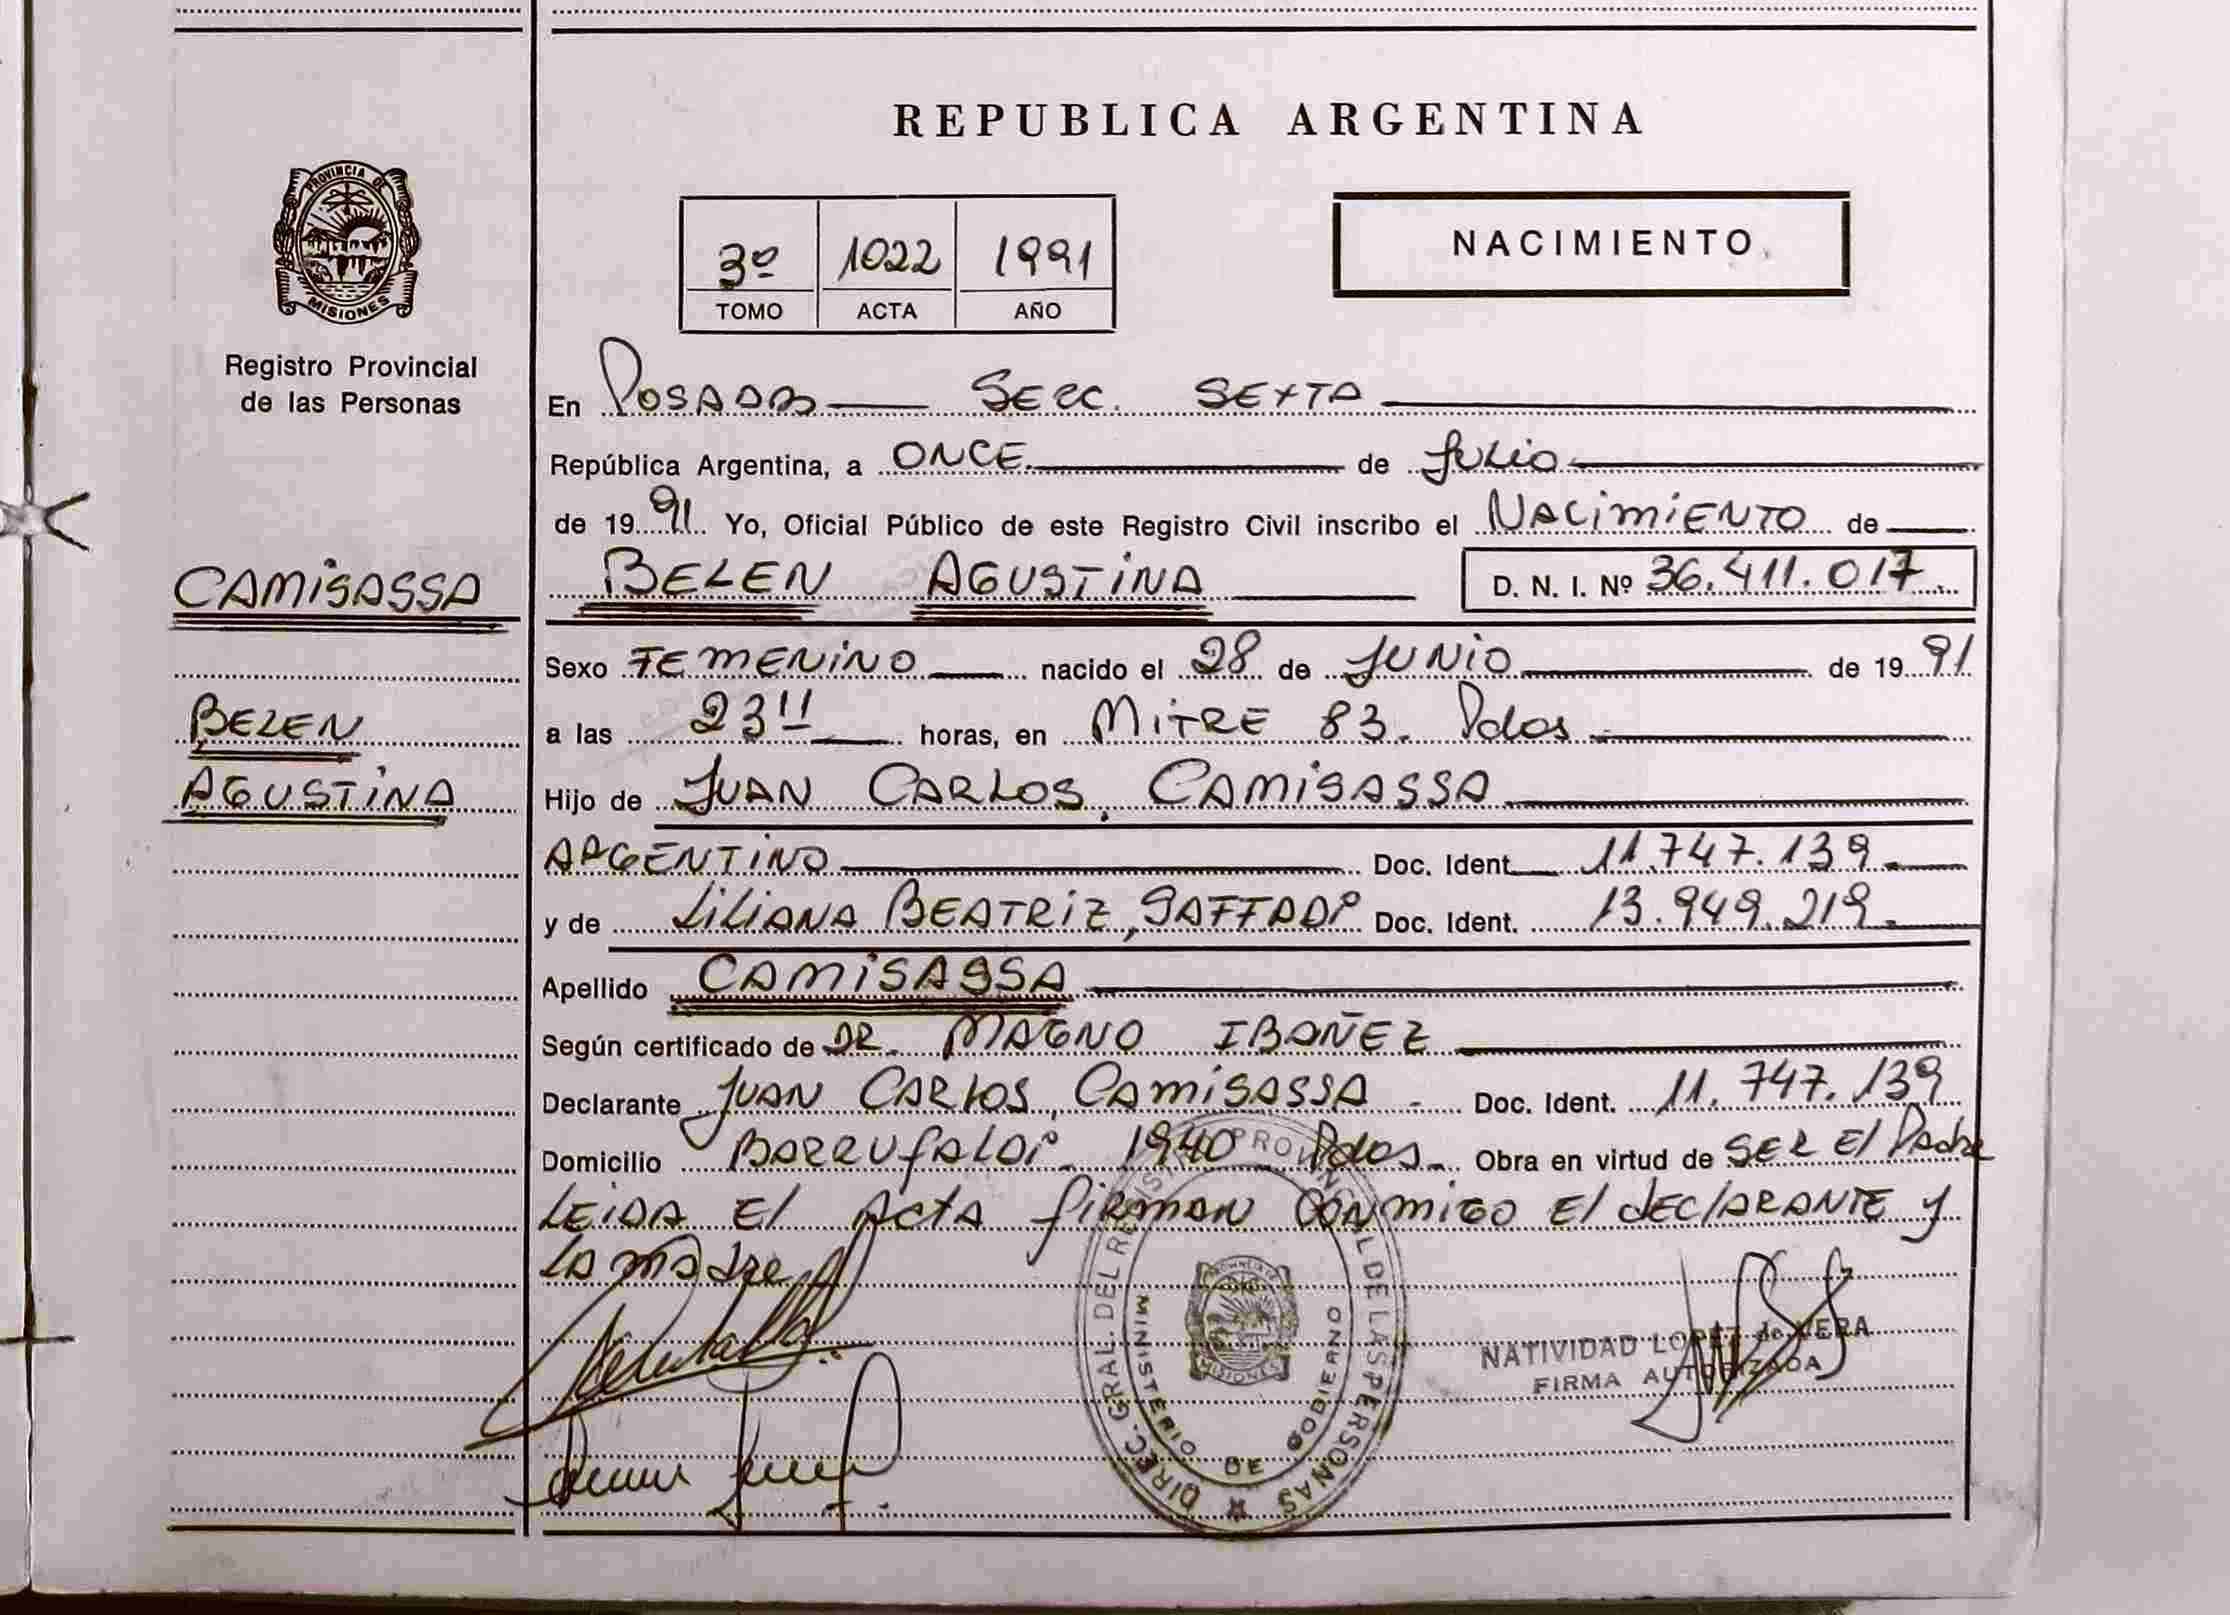 REPUBLICA ARGENTINA
PROVINCIA DE
MISIONES
Registro Provincial
de las Personas
3º 1022 1991
TOMO ACTA AÑO
NACIMIENTO
En POSADAS SECC. SEXTA
República Argentina, a ONCE de JULIO
de 1991 Yo, Oficial Público de este Registro Civil inscribo el NACIMIENTO de
CAMISASSA
BELEN AGUSTINA D. N. I. Nº 36.411.017
Sexo FEMENINO nacido el 28 de JUNIO de 1991
BELEN
AGUSTINA
a las 23 horas, en MITRE 83. Pdas
Hijo de JUAN CARLOS, CAMISASSA
ARGENTINO Doc. Ident 11.747.139
y de LILIANA BEATRIZ, Doc. Ident. 13.949.219
Apellido CAMISASSA
Según certificado de DR. MAGNO IBAÑEZ
Declarante JUAN CARLOS, CAMISASSA - Doc. Ident. 11.747.139
Domicilio BARRUFALDI 1940 Pdas Obra en virtud de SER El Padre
LEIDA El ActA fiRMAN CONMIGO El dEClARANTE y
LA MAdre
DIREC. GRAL. DEL REGISTRO PROVINCIAL DE LAS PERSONAS
MINISTERIO DE GOBIERNO
PROVINCIA DE
MISIONES
NATIVIDAD LOPEZ de VERA
FIRMA AUTORIZADA